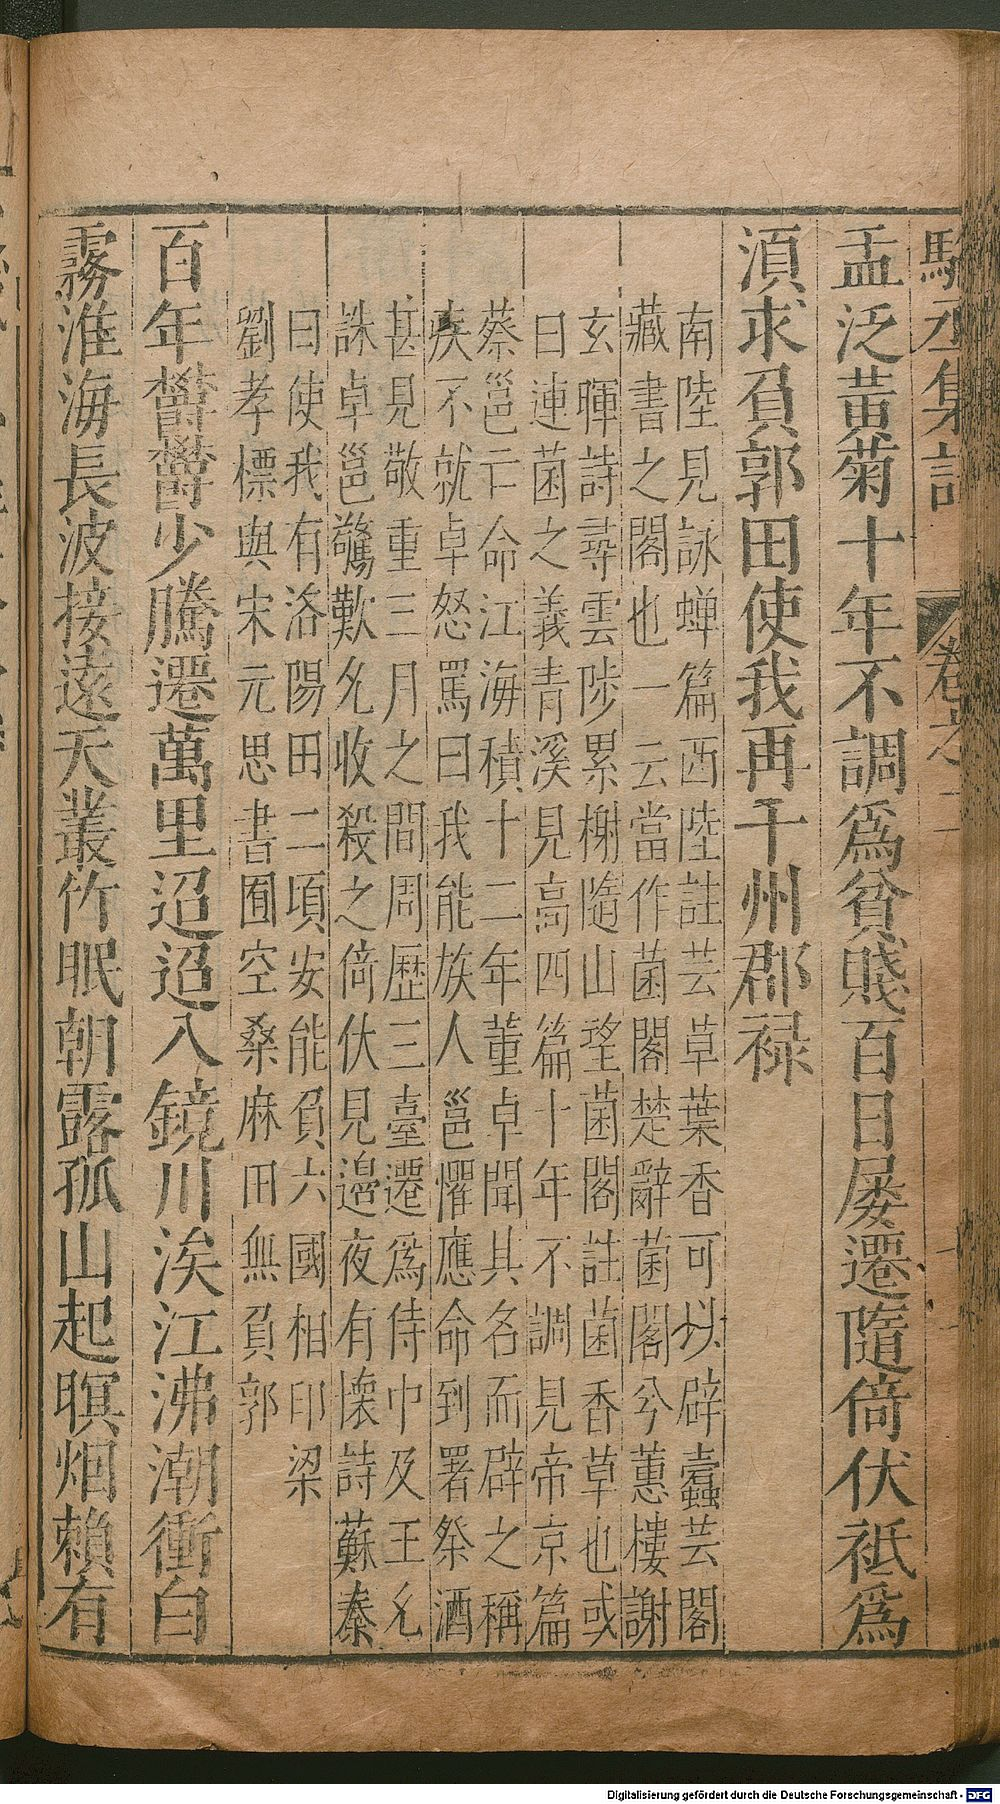 駱丞集註 卷之二
盂泛黃菊十年不調爲貧賤百日屡遷隨倚伏祗爲
湏求負郭田使我再干州郡祿
南陸見詠蝉篇西陸註芸草葉香可以辟蠹芸閣
藏書之閣也一云當作菌閣楚辭菌閣兮蕙樓謝
玄暉詩尋雲陟累榭隨山望菌閣註菌香草也或
曰連菌之義青溪見高四篇十年不調見帝京篇
蔡邕亡命江海積十二年董卓聞其名而辟之稱
疾不就卓怒罵曰我能族人邕懼應命到署祭酒
甚見敬重三月之間周歷三臺遷爲侍中及王允
誅卓邕驚歎允收殺之倚伏見邉夜有懐詩蘇秦
曰使我有洛陽田二項安能負六國相印梁
劉孝標與宋元思書囿空桑麻田無負郭
百年欝欝少騰遷萬里迢迢入鏡川涘江沸潮衝白
霧淮海長波接遠天叢竹眠朝露孤山起暝烟賴有
Digitalisierung gefördert durch die Deutsche Forschungsgemeinschaft - DFG